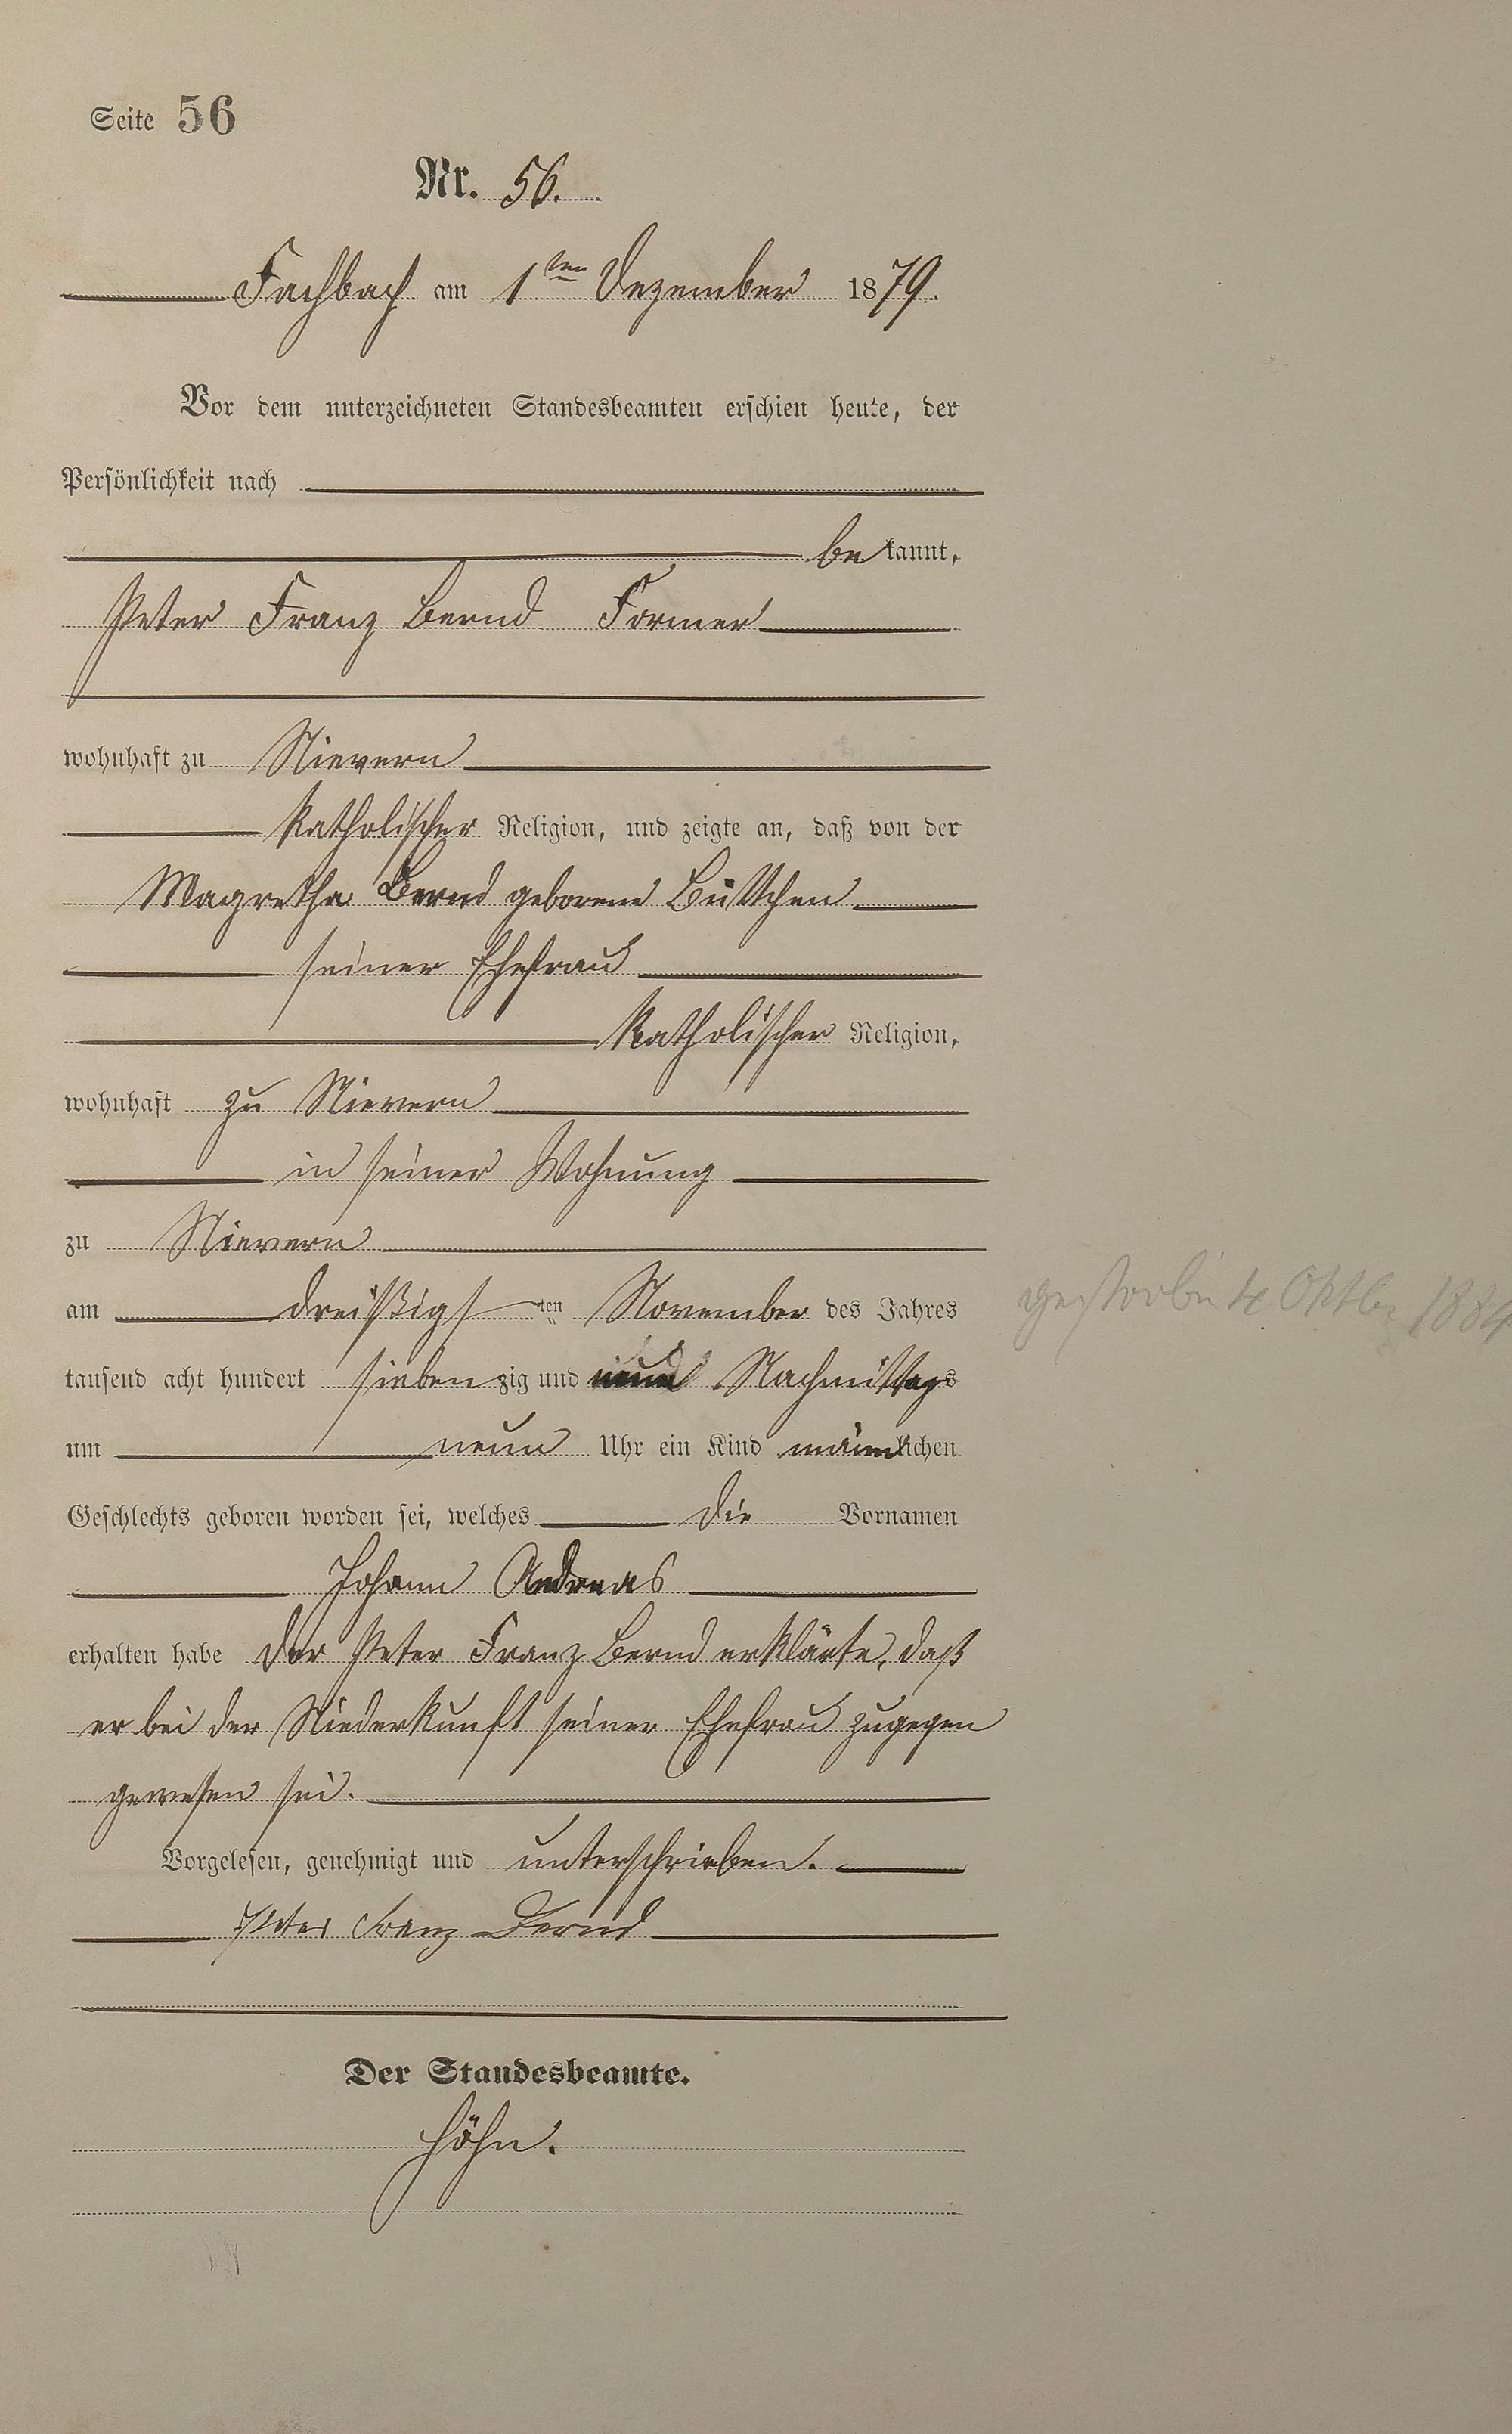 Seite 56
Nr. 56.
Fachbach am 1ten Dezember 1879.
Vor dem unterzeichneten Standesbeamten erschien heute, der
Persönlichkeit nach
bekannt,
Peter Franz Bernd Former
wohnhaft zu Nievern
katholischer Religion, und zeigte an, daß von der
Magretha Bernd geborene Büttchen
seiner Ehefrau
katholischer Religion,
wohnhaft zu Nievern
in seiner Wohnung
zu Nievern
am dreißigsten November des Jahres
gestorben 4 Oktbr 1884
tausend acht hundert siebenzig und neun Nachmittags
um neun Uhr ein Kind männlichen
Geschlechts geboren worden sei, welches die Vornamen
Johann Andreas
erhalten habe Der Peter Franz Bernd erklärte, daß
er bei der Niederkunft seiner Ehefrau zugegen
gewesen sei.
Vorgelesen, genehmigt und unterschrieben.
Peter Franz Bernd
Der Standesbeamte.
Höhn.